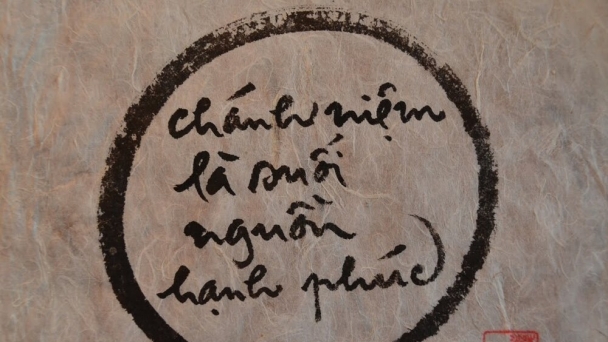 chánh niệm
là suối
nguồn
hạnh phúc